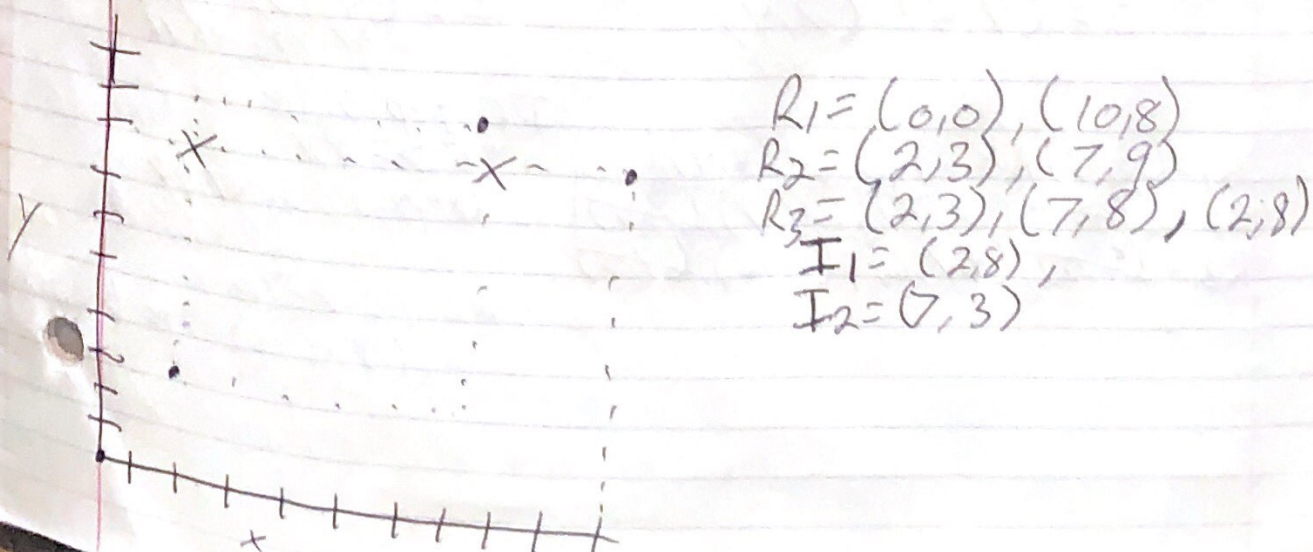 R1 = (0,0), (10,8)
R2 = (2,3), (7,9)
R3 = (2,3), (7,8), (2,8)
I1 = (2,8),
I2 = (7,3)
y
x